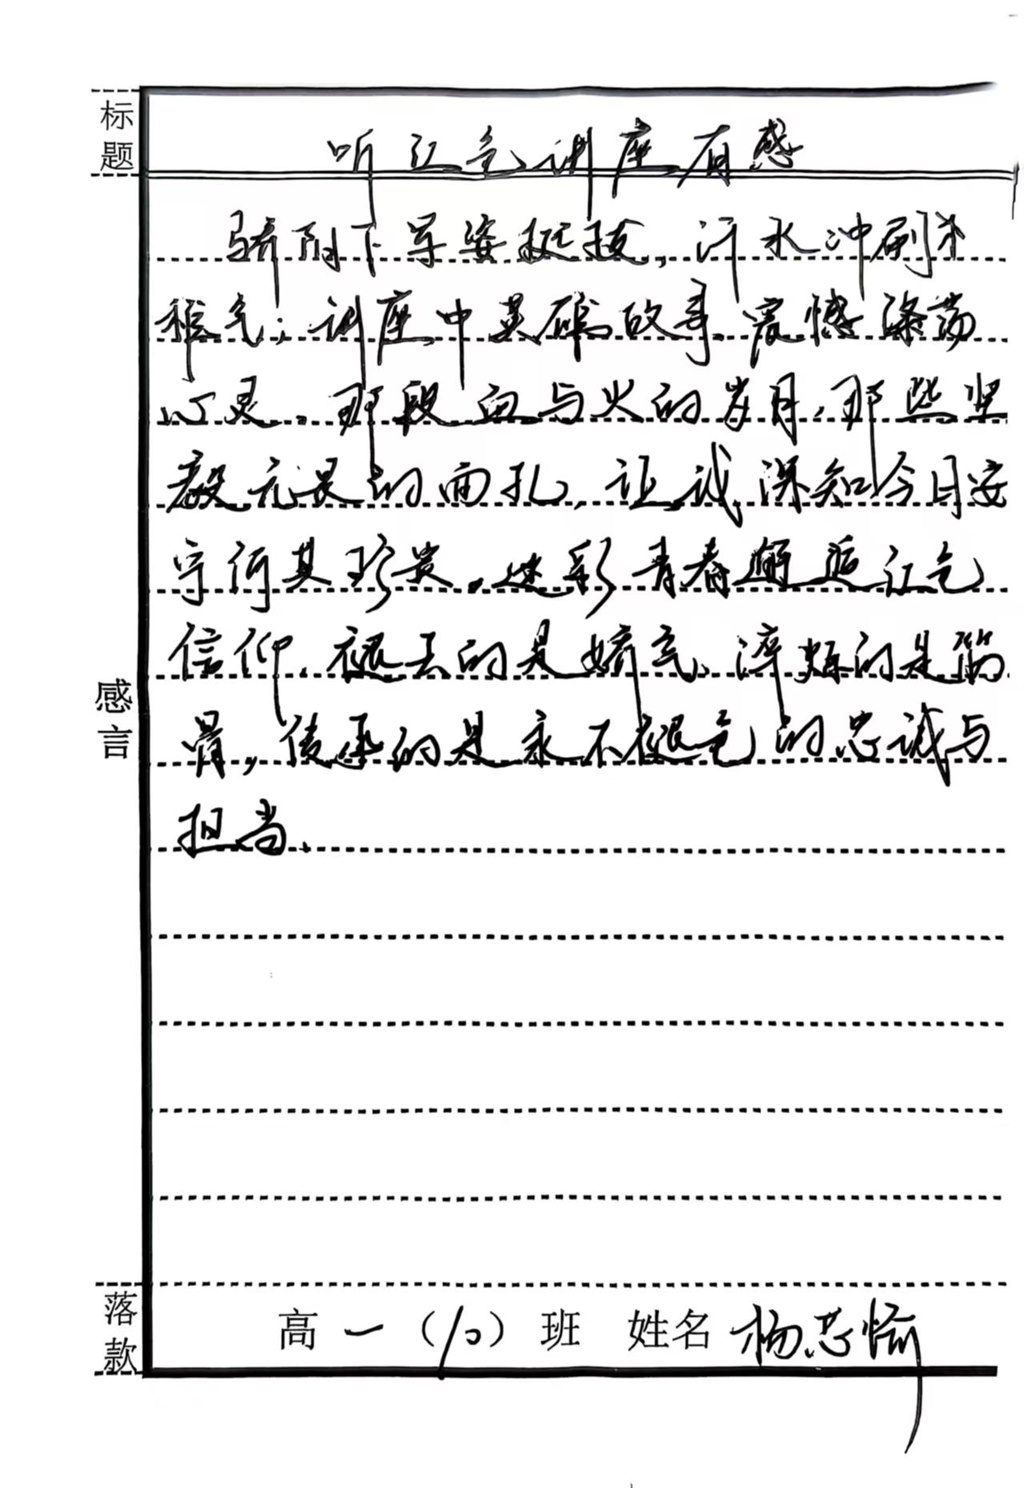 标题
听红色讲座有感
骄阳下军姿挺拔,汗水冲刷
稚气;讲座中英雄故事震憾涤荡
心灵。那段血与火的岁月,那些坚
毅无畏的面孔,让我深知今日安
宁何其珍贵。迷彩青春邂逅红色
信仰,褪去的是娇气、淬炼的是筋
骨,传承的是永不褪色的忠诚与
担当。
感言
落款
高一(10)班 姓名 杨芯愉